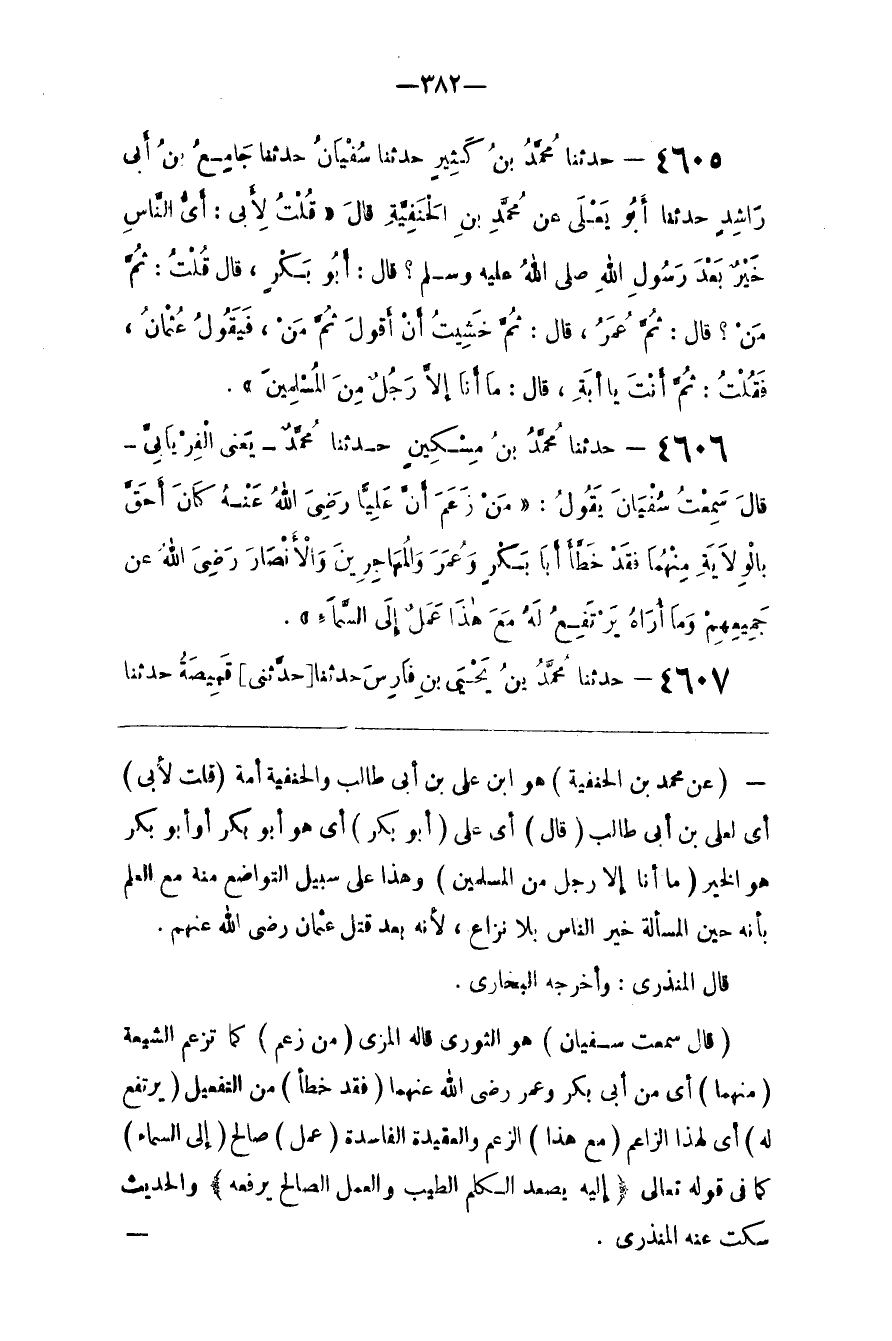 —٣٨٢—
٤٦٠٥ — حدثنا مُحمَّدُ بنُ كَثِيرٍ حدثنا سُفْيَانُ حدثنا جَامِعُ بنُ أَبى
رَاشِدٍ حدثنا أَبُو يَعْلَى عن مُحمَّدِ بنِ الْحَنَفِيَّةِ قالَ « قُلْتُ لِأَبى : أَىُّ النَّاسِ
خَيْرٌ بَعْدَ رَسُولِ اللهِ صلى اللهُ عليه وسلم ؟ قال : أَبُو بَكْرٍ ، قال قُلْتُ : ثُمَّ
مَنْ ؟ قال : ثُمَّ عُمَرُ ، قال : ثُمَّ خَشِيتُ أَنْ أَقولَ ثُمَّ مَنْ ، فَيَقُولُ عُثْمانُ ،
فَقُلْتُ : ثُمَّ أَنْتَ يا أَبَةِ ، قال : ما أَنا إلاَّ رَجُلٌ مِنَ الْمُسْلِمِينَ » .
٤٦٠٦ — حدثنا مُحمَّدُ بنُ مِسْكِينٍ حدثنا مُحمَّدٌ – يَعْنى الْفِرْيَابِىَّ –
قالَ سَمِعْتُ سُفْيَانَ يَقُولُ : « مَنْ زَعَمَ أَنَّ عَلِيًّا رَضِىَ اللهُ عَنْهُ كَانَ أَحَقَّ
بالْوِلاَيَةِ مِنْهُمَا فقَدْ خَطَّأَ أَبَا بَكْرٍ وَعُمَرَ وَالْمُهَاجِرِينَ وَالْأَنْصَارَ رَضِىَ اللهُ عن
جَمِيعِهِمْ وَمَا أُرَاهُ يَرْتَفِعُ لَهُ مَعَ هٰذَا عَمَلٌ إِلَى السَّمَاءِ » .
٤٦٠٧ — حدثنا مُحمَّدُ بنُ يَحْيَى بنِ فَارِسَ حدثنا [حدَّثنى] قَبِيصَةُ حدثنا
— ( عن محمد بن الحنفية ) هو ابن على بن أبى طالب والحنفية أمة (قلت لأبى )
أى لعلى بن أبى طالب ( قال ) أى على ( أبو بكر ) أى هو أبو بكر أو أبو بكر
هو الخير ( ما أنا إلا رجل من المسلمين ) وهذا على سبيل التواضع منه مع العلم
بأنه حين المسألة خير الناس بلا نزاع ، لأنه بعد قتل عثمان رضى الله عنهم .
قال المنذرى : وأخرجه البخارى .
( قال سمعت سفيان ) هو الثورى قاله المزى ( من زعم ) كما تزعم الشيعة
( منهما ) أى من أبى بكر وعمر رضى الله عنهما ( فقد خطأ ) من التفعيل ( يرتفع
له ) أى لهذا الزاعم ( مع هذا ) الزعم والعقيدة الفاسدة ( عمل ) صالح ( إلى السماء )
كما فى قوله تعالى ﴿ إليه يصعد الكلم الطيب والعمل الصالح يرفعه ﴾ والحديث
سكت عنه المنذرى . —